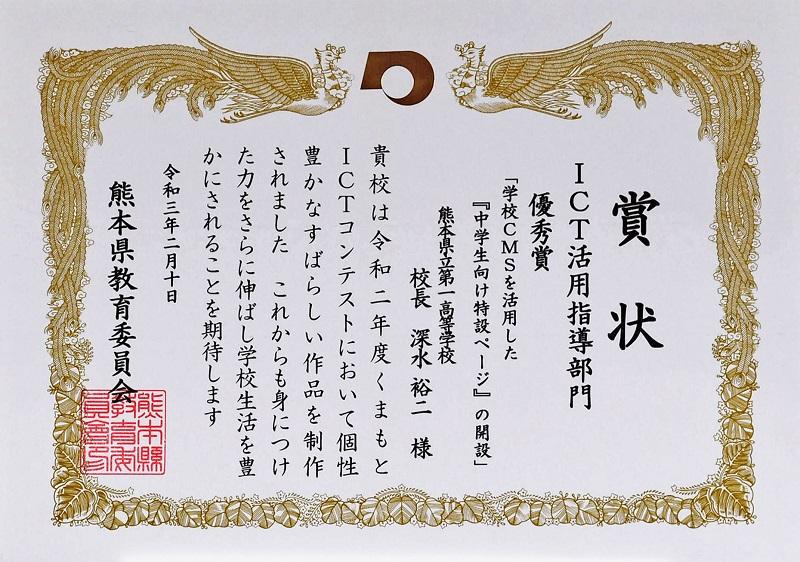 賞状
ICT活用指導部門
優秀賞
「学校CMSを活用した
『中学生向け特設ページ』の開設」
熊本県立第一高等学校
校長 深水 裕二 様
貴校は令和二年度くまもと
ICTコンテストにおいて個性
豊かなすばらしい作品を制作
されました これからも身につけ
た力をさらに伸ばし学校生活を豊
かにされることを期待します
令和三年二月十日
熊本県教育委員会
熊本縣
教育委
員會印